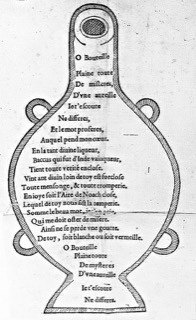 O Bouteille
Plaine toute
De misteres,
D'vne aureille
Ie t'escoute
Ne differes,
Et le mot proferes,
Auquel pend mon cueur.
En la tant diuine liqueur,
Baccus qui fut d'Inde vainqueur,
Tient toute verité enclose.
Vint tant diuin loin de toy est forclose
Toute mensonge, & toute tromperie.
En ioye soit l'Aire de Noach close,
Lequel de toy nous fist la temperie.
Somme le beau mot,
Qui me doit oster de misere.
Ainsi ne se perde vne goutte.
De toy, soit blanche ou soit vermeille.
O Bouteille
Plaine toute
De mysteres
D'vne aureille
Ie t'escoute
Ne differes.